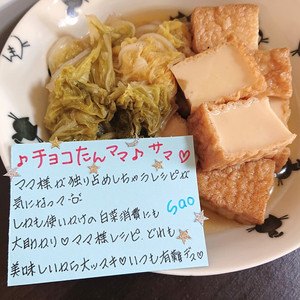 ♪チョコたんママ♪サマ♡
ママ様が独り占めしちゃうレシピが
気になって
sao
しかも使いかけの白菜消費にも
大助かり♡ママ様レシピ、どれも
美味しいから大ッスキ♡いつも有難デス♡